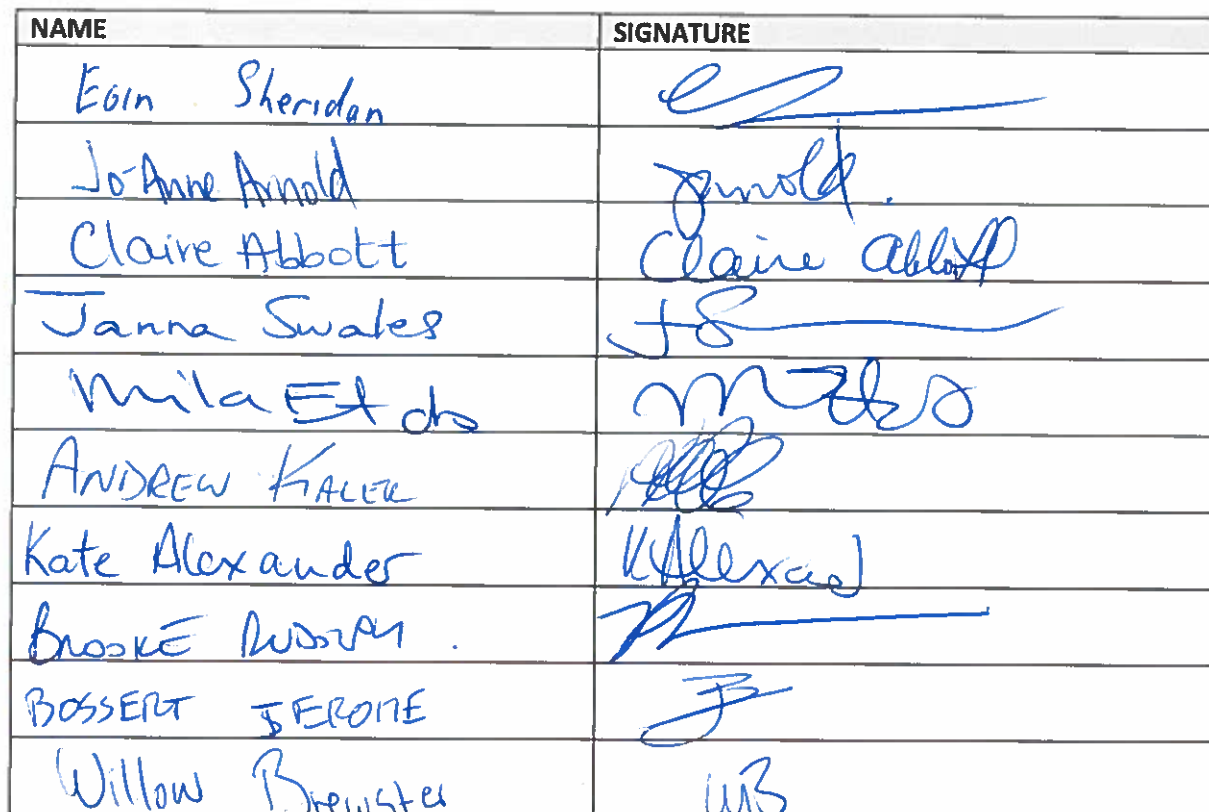 NAME SIGNATURE
Eoin Sheridan
Jo-Anne Arnold Jarnold.
Claire Abbott Claire Abbott
Janna Swales JS
Mila
ANDREW
Kate Alexander KAlexand
BROOKE
BOSSERT JEROME JB
Willow Brewster WB